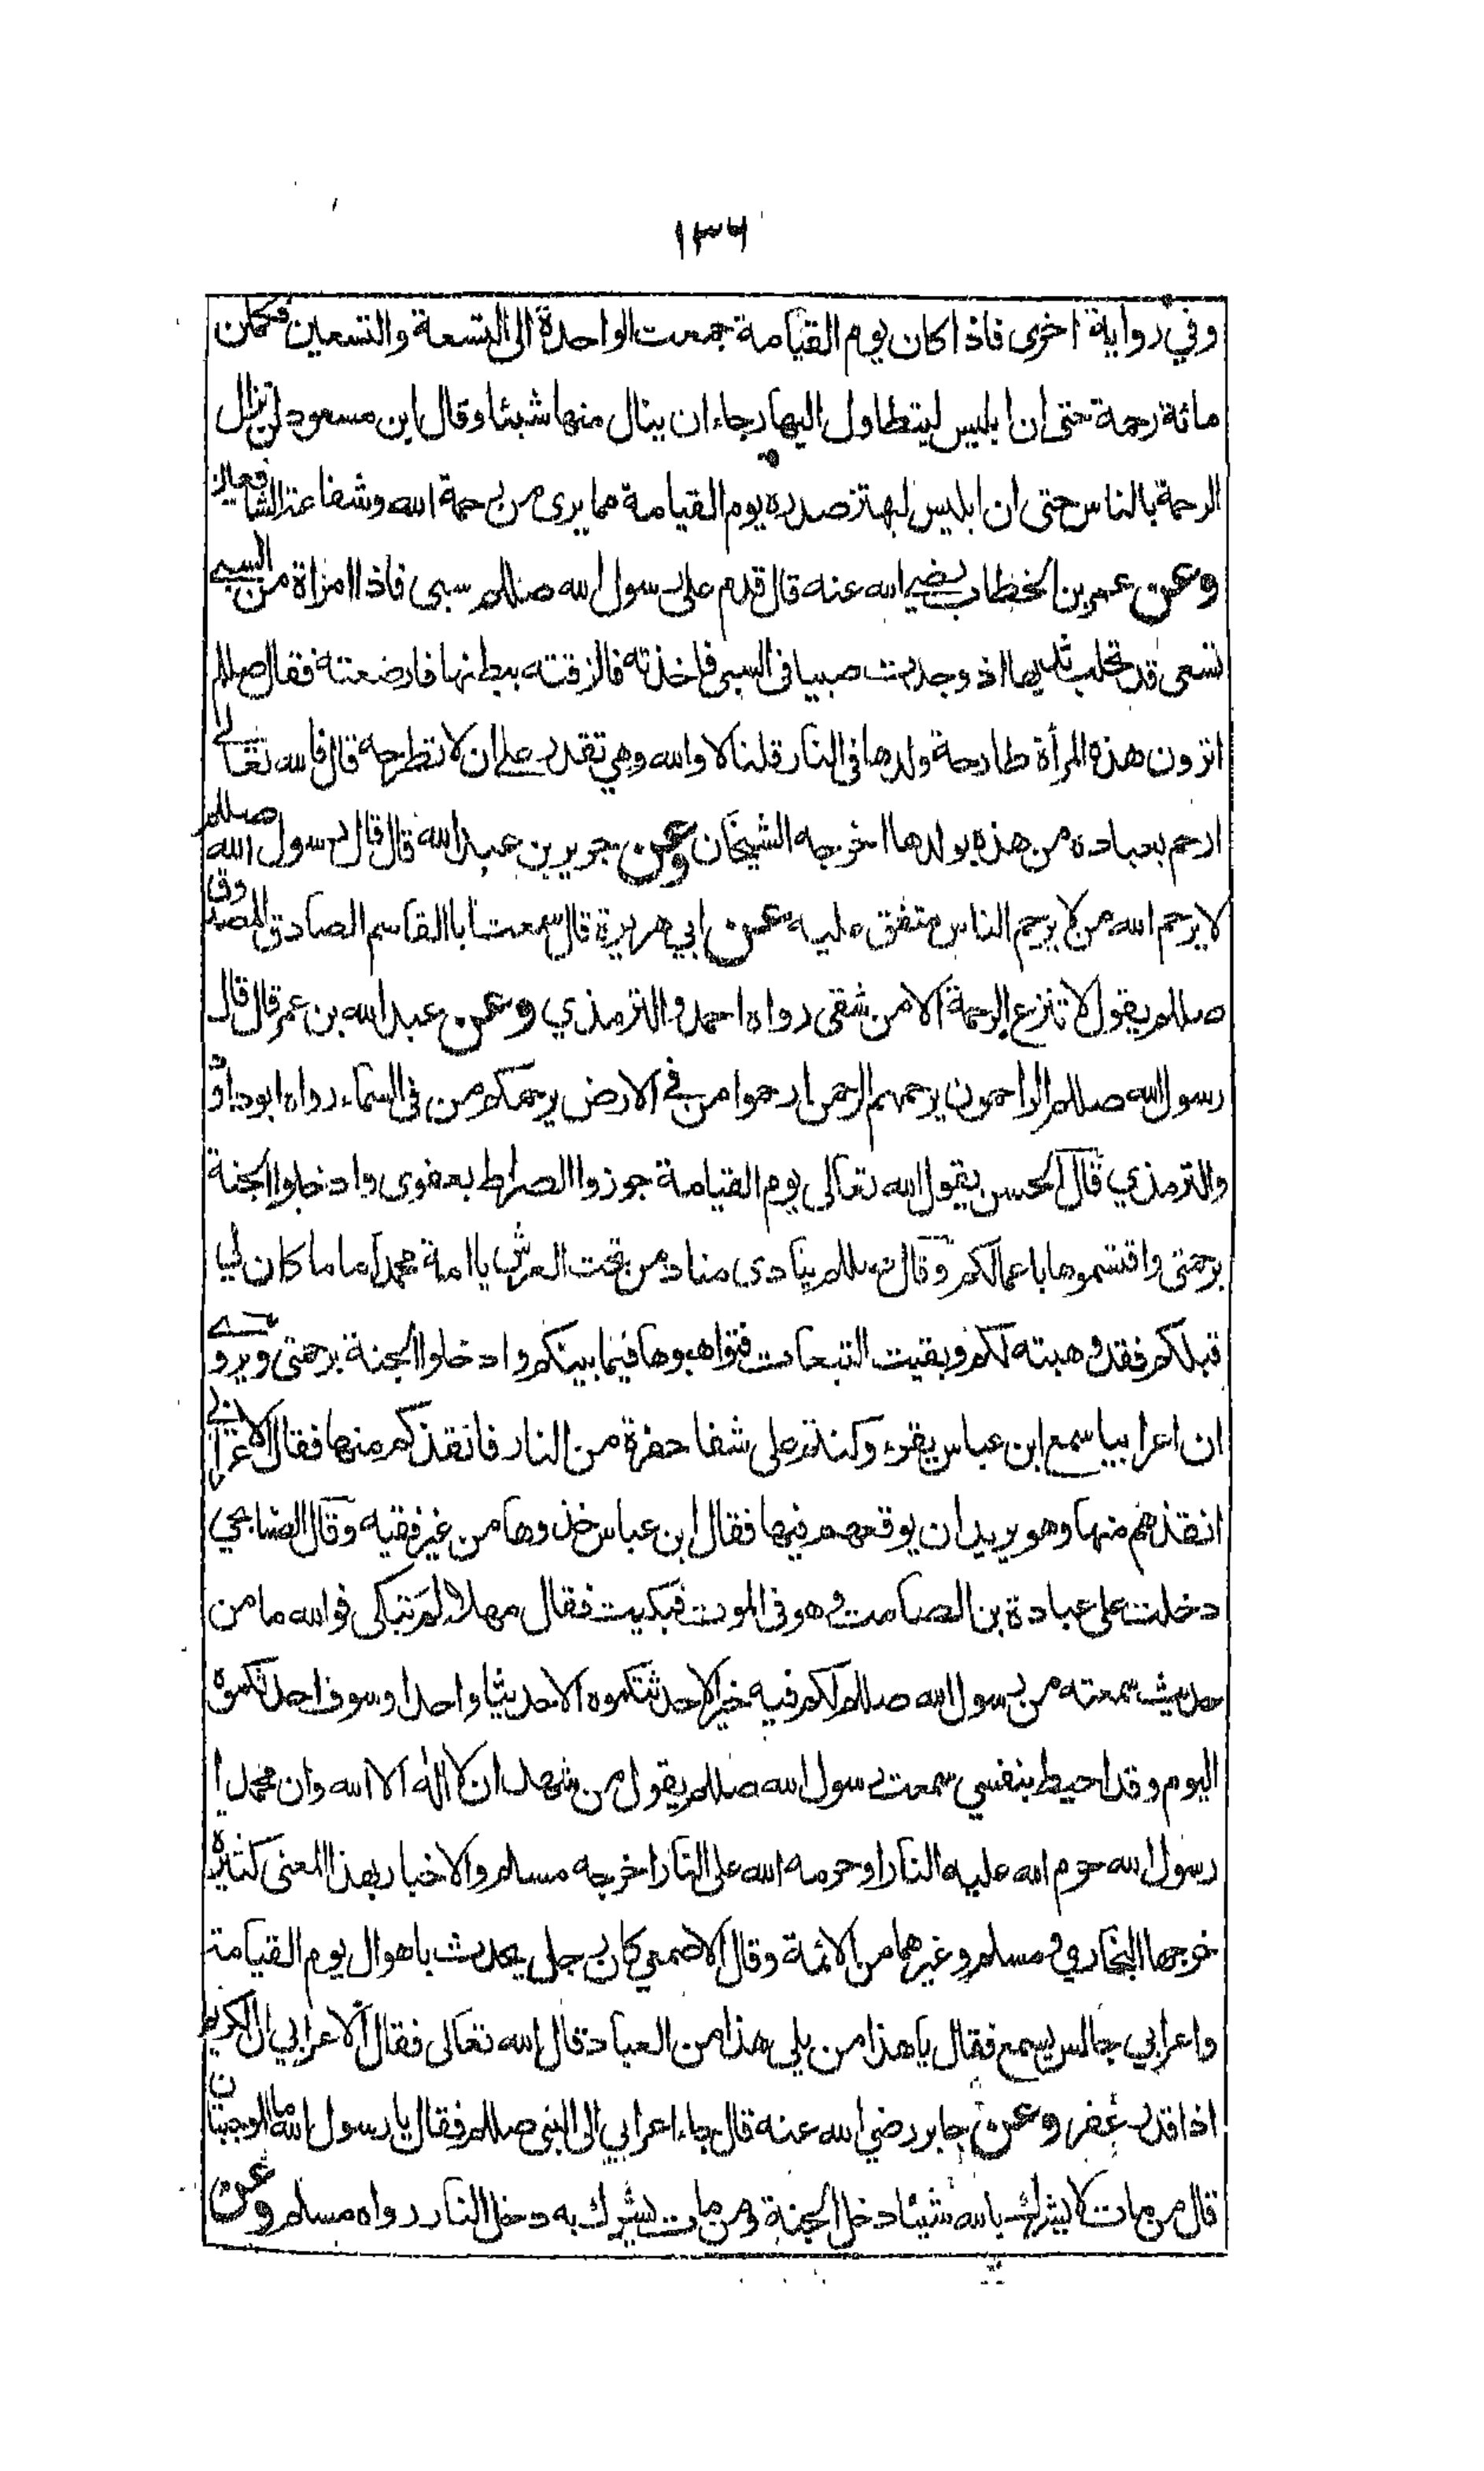 ١٣٦
وفي رواية اخرى فاذا كان يوم القيامة جمعت الواحدة الى التسعة والتسعين فتكملن
مائة رحمة حتى ان ابليس ليتطاول اليها رجاء ان ينال منها شيئا وقال ابن مسعود لن تزال
الرحمة بالناس حتى ان ابليس ليهتز صدره يوم القيامة مما يرى من رحمة الله وشفاعة الشافعين
وعن عمر بن الخطاب رضي الله عنه قال قدم على رسول الله صللم سبي فاذا امراة من السبي
تسعى قد تحلب ثديها اذ وجدت صبيا فى السبى فاخذته فالزقته ببطنها فارضعته فقال صللم
اترون هذه المرأة طارحة ولدها فى النار قلنا لا والله وهي تقدر على ان لا تطرحه قال فالله تعالى
ارحم بعباده من هذه بولدها اخرجه الشيخان وعن جرير بن عبد الله قال قال رسول الله صللم
لا يرحم الله من لا يرحم الناس متفق عليه عن ابي هريرة قال سمعت ابا القاسم الصادق المصدوق
صللم يقول لا تنزع الرحمة الا من شقى رواه احمد والترمذي وعن عبد الله بن عمر قال قال
رسول الله صللم الراحمون يرحمهم الرحمن ارحموا من في الارض يرحمكم من فى السماء رواه ابو داؤد
والترمذي قال الحسن يقول الله تعالى يوم القيامة جوزوا الصراط بعفوى وادخلوا الجنة
برحمتى واقتسموها باعمالكم وقال صللم ينادى مناد من تحت العرش يا امة محمد اما ما كان لي
قبلكم فقد وهبته لكم وبقيت التبعات فتواهبوها فيما بينكم وادخلوا الجنة برحمتى ويروى
ان اعرابيا سمع ابن عباس يقرء وكنتم على شفا حفرة من النار فانقذكم منها فقال الاعرابي
انقذهم منها وهو يريد ان يوقعهم فيها فقال ابن عباس خذوها من غير فقيه وقال الصنابحي
دخلت على عبادة بن الصامت وهو فى الموت فبكيت فقال مهلا لم تبكى فوالله ما من
حديث سمعته من رسول الله صللم لكم فيه خير الا حدثتكموه الا حديثا واحدا وسوف احدثكموه
اليوم وقد احيط بنفسي سمعت رسول الله صللم يقول من شهد ان لا اله الا الله وان محمدا
رسول الله حرم الله عليه النار او حرمه الله على النار اخرجه مسلم والاخبار بهذا المعنى كثيرة
خرجها البخاري ومسلم وغيرهما من الائمة وقال الاصمعي كان رجل يحدث باهوال يوم القيامة
واعرابي جالس يسمع فقال يا هذا من يلي هذا من العباد قال الله تعالى فقال الاعرابي ان الكريم
اذا قدر غفر وعن جابر رضي الله عنه قال جاء اعرابي الى النبى صللم فقال يا رسول الله ما الموجبتان
قال من مات لا يشرك بالله شيئا دخل الجنة ومن مات يشرك به دخل النار رواه مسلم وعن